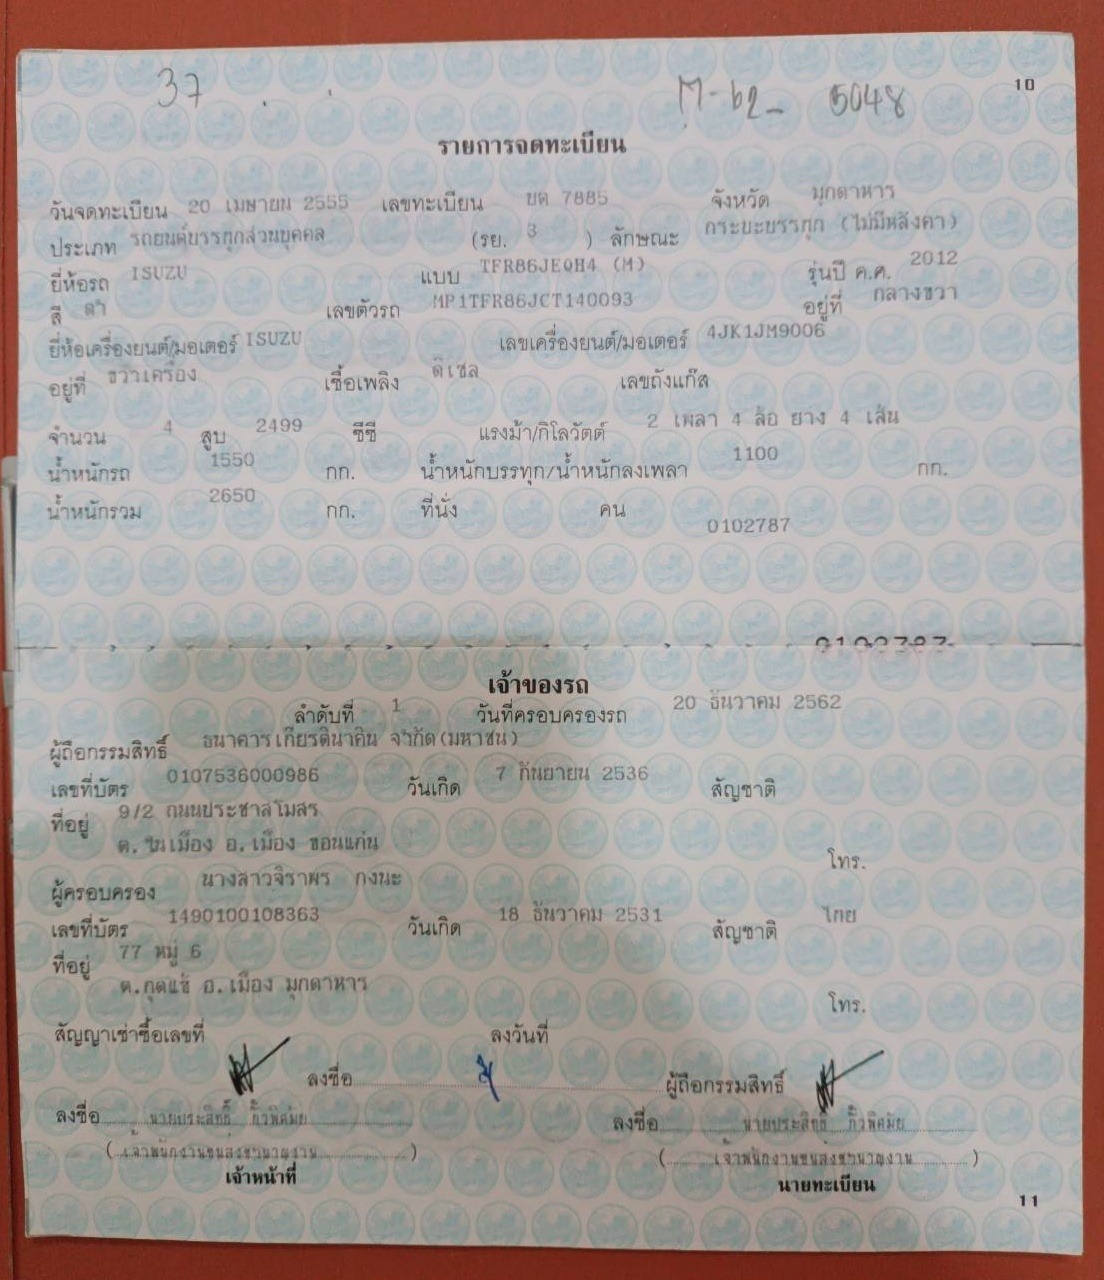 37
M-62- 5048
10
รายการจดทะเบียน
วันจดทะเบียน 20 เมษายน 2555 เลขทะเบียน บต 7885 จังหวัด มุกดาหาร
ประเภท รถยนต์บรรทุกส่วนบุคคล (รย. 3 ) ลักษณะ กระบะบรรทุก (ไม่มีหลังคา)
ยี่ห้อรถ ISUZU แบบ TFR86JEQH4 (M) รุ่นปี ค.ศ. 2012
สี ดำ เลขตัวรถ MP1TFR86JCT140093 อยู่ที่ กลางขวา
ยี่ห้อเครื่องยนต์/มอเตอร์ ISUZU เลขเครื่องยนต์/มอเตอร์ 4JK1JM9006
อยู่ที่ ขวาเครื่อง เชื้อเพลิง ดีเซล เลขถังแก๊ส
จำนวน 4 สูบ 2499 ซีซี แรงม้า/กิโลวัตต์ 2 เพลา 4 ล้อ ยาง 4 เส้น
น้ำหนักรถ 1550 กก. น้ำหนักบรรทุก/น้ำหนักลงเพลา 1100 กก.
น้ำหนักรวม 2650 กก. ที่นั่ง คน
0102787
0102787
เจ้าของรถ
ลำดับที่ 1 วันที่ครอบครองรถ 20 ธันวาคม 2562
ผู้ถือกรรมสิทธิ์ ธนาคารเกียรตินาคิน จำกัด(มหาชน)
เลขที่บัตร 0107536000986 วันเกิด 7 กันยายน 2536 สัญชาติ
ที่อยู่ 9/2 ถนนประชาสโมสร
ต.ในเมือง อ.เมือง ขอนแก่น
โทร.
ผู้ครอบครอง นางสาวจิราพร กงนะ
เลขที่บัตร 1490100108363 วันเกิด 18 ธันวาคม 2531 สัญชาติ ไทย
ที่อยู่ 77 หมู่ 6
ต.กุดแข้ อ.เมือง มุกดาหาร
โทร.
สัญญาเช่าซื้อเลขที่ ลงวันที่
ลงชื่อ ผู้ถือกรรมสิทธิ์
ลงชื่อ นายประสิทธิ์ กิ๊วพิศมัย ลงชื่อ นายประสิทธิ์ กิ๊วพิศมัย
(เจ้าพนักงานขนส่งชำนาญงาน) (เจ้าพนักงานขนส่งชำนาญงาน)
เจ้าหน้าที่ นายทะเบียน
11